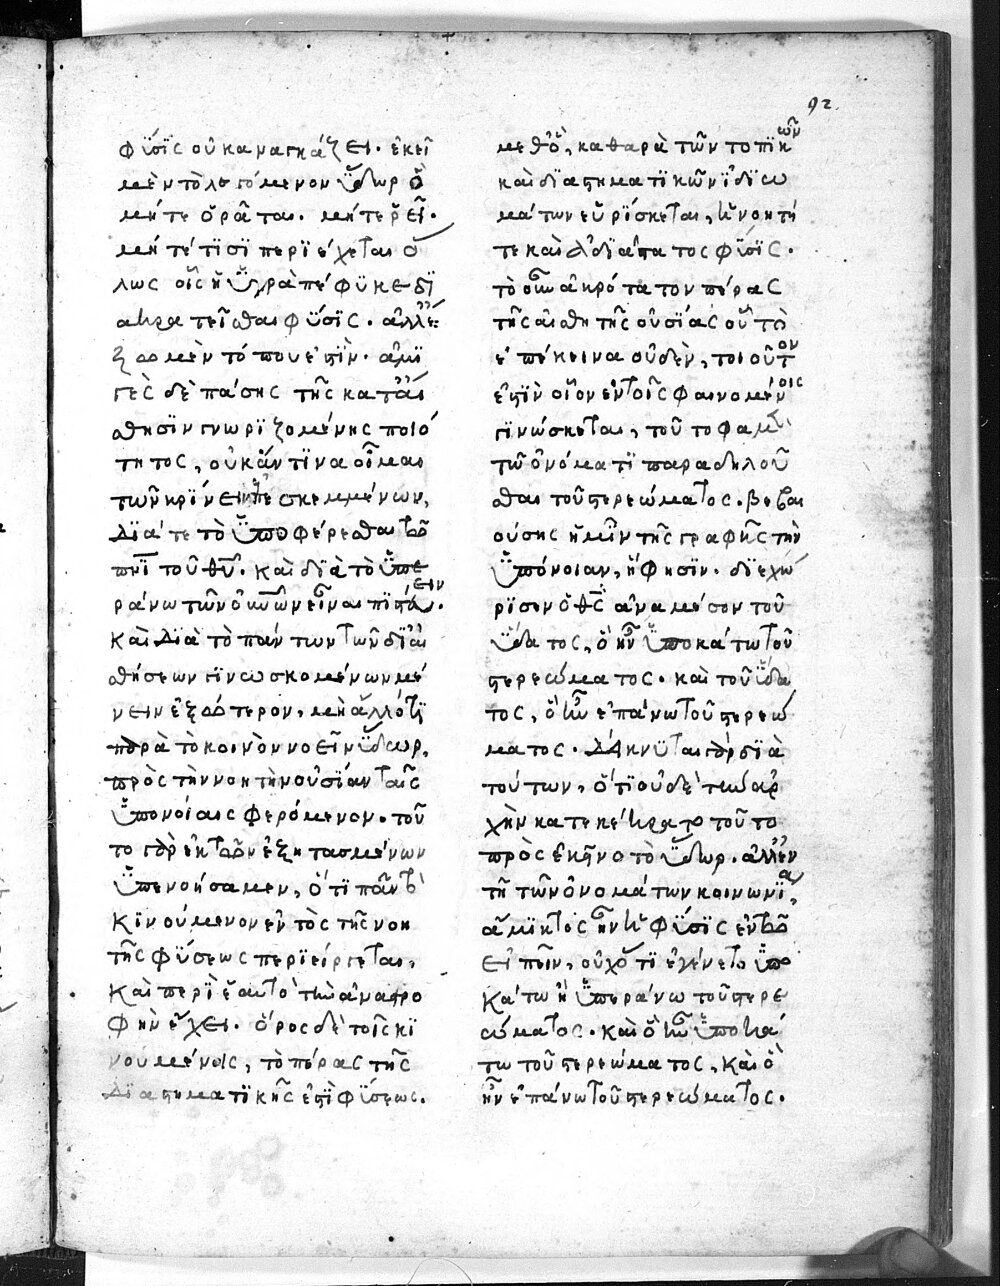 92
φύσις οὐκ ἀναγκάζει. ἐκεῖ
μὲν τὸ λεγόμενον ὕδωρ ὃ
μήτε ὁρᾶται. μήτε ῥεῖ.
μήτέ τισι περιέχεται ὅ
λως οἷς ἡ ὑγρὰ πέφυκε δι
ακρατεῖσθαι φύσις. ἀλλ' ἔ
ξω μὲν τόπου ἐστὶν. ἀμι
γὲς δὲ πάσης τῆς κατ' αἴ
σθησιν γνωριζομένης ποιό
τητος, οὐκ ἄν τινα οἶμαι
τῶν κρίνειν ἐσκεμμένων,
διά τε τὸ ὑποφέρεσθαι τῶ
πνι τοῦ θυ. καὶ διὰ τὸ ὑπε
ράνω τῶν οὐνῶν εἶναι πιστεύειν.
καὶ διὰ τὸ πάντων τῶν δι' αἰ
σθήσεων γινωσκομένων μέ
νειν ἐξώτερον, μὴ ἄλλό τι
παρὰ τὸ κοινὸν νοεῖν ὕδωρ,
πρὸς τὴν νοητὴν οὐσίαν ταῖς
ὑπονοίαις φερόμενον. τοῦ
το γὰρ ἐκ τῶν ἐξητασμένων
ὑπενοήσαμεν, ὅτι πᾶν τὸ
κινούμενον ἐντὸς τῆς νοη
τῆς φύσεως περιείργεται,
καὶ περὶ ἑαυτὸ τὴν ἀναστρο
φὴν ἔχει. ὅρος δὲ τοῖς κι
νουμένοις, τὸ πέρας τῆς
διαστηματικῆς ἐστὶ φύσεως.
μεθ' ὃ, καθαρὰ τῶν τοπικῶν
καὶ διαστηματικῶν ἰδιω
μάτων εὑρίσκεται, ἡ νοητή
τε καὶ ἀδιάστατος φύσις.
τὸ οὖν ἀκρότατον πέρας
τῆς αἰσθητῆς οὐσίας οὗ τὸ
ἐπέκεινα οὐδὲν, τοιοῦτον
ἐστὶν οἷον ἐν τοῖς φαινομένοις
γινώσκεται, τοῦτό φαμεν
τῶ ὀνόματι παραδηλοῦ
σθαι τοῦ στερεώματος. βεβαι
ούσης ἡμῖν τῆς γραφῆς τὴν
ὑπόνοιαν, ἥ φησιν. διεχώ
ρισεν ὁ θς ἀναμέσον τοῦ
ὕδατος, ὃ ἦν ὑποκάτω τοῦ
στερεώματος. καὶ τοῦ ὕδα
τος, ὃ ἦν ἐπάνω τοῦ στερεώ
ματος. δείκνυται γὰρ διὰ
τούτων, ὅτι οὐδὲ τὴν ἀρ
χὴν κατεκέκρατο τοῦτο
πρὸς ἐκεῖνο τὸ ὕδωρ. ἀλλ' ἐν
τῆ τῶν ὀνομάτων κοινωνία,
ἄμικτος ἦν ἡ φύσις ἐν τῶ
εἰπεῖν, οὐχ ὅτι ἐγένετο ὑπο
κάτω ἢ ὑπεράνω τοῦ στερε
ώματος. καὶ ὃ ἦν ὑποκά
τω τοῦ στερεώματος, καὶ ὃ
ἦν ἐπάνω τοῦ στερεώματος.